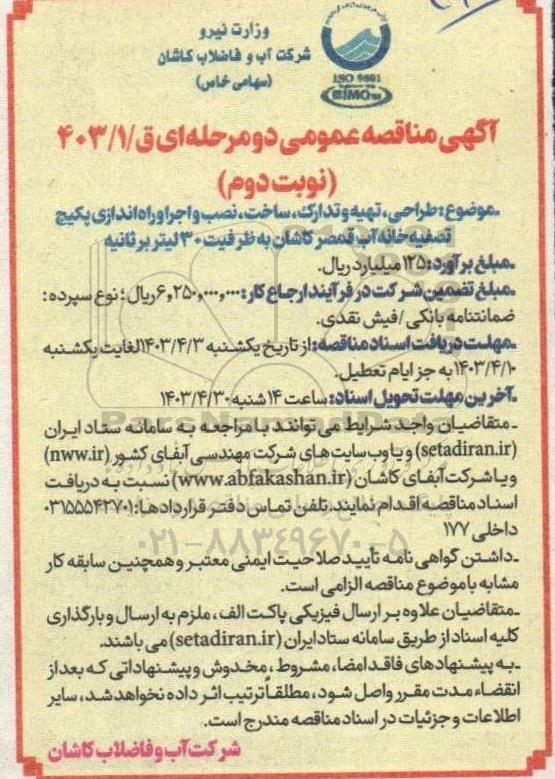 وزارت نیرو
شرکت آب و فاضلاب کاشان
(سهامی خاص)
ISO 9001
آگهی مناقصه عمومی دو مرحله ای ق/۴۰۳/۱
(نوبت دوم)
ـموضوع: طراحی، تهیه و تدارک، ساخت، نصب و اجرا و راه اندازی پکیج
تصفیه خانه آب قمصر کاشان به ظرفیت ۳۰ لیتر بر ثانیه
ـمبلغ برآورد: ۱۲۵ میلیارد ریال.
ـمبلغ تضمین شرکت در فرآیند ارجاع کار: ۶,۲۵۰,۰۰۰,۰۰۰ ریال؛ نوع سپرده:
ضمانتنامه بانکی / فیش نقدی.
ـمهلت دریافت اسناد مناقصه: از تاریخ یکشنبه ۱۴۰۳/۴/۳ لغایت یکشنبه
۱۴۰۳/۴/۱۰ به جز ایام تعطیل.
ـآخرین مهلت تحویل اسناد: ساعت ۱۴ شنبه ۱۴۰۳/۴/۳۰
ـ متقاضیان واجد شرایط می توانند با مراجعه به سامانه ستاد ایران
(setadiran.ir) و یا وب سایت های شرکت مهندسی آبفای کشور (nww.ir)
و یا شرکت آبفای کاشان (www.abfakashan.ir) نسبت به دریافت
اسناد مناقصه اقدام نمایند. تلفن تماس دفتر قراردادها: ۰۳۱۵۵۵۴۲۷۰۱
داخلی ۱۷۷
۰۲۱-۸۸۳۴۹۶۷۰-۵
ـداشتن گواهی نامه تأیید صلاحیت ایمنی معتبر و همچنین سابقه کار
مشابه با موضوع مناقصه الزامی است.
ـمتقاضیان علاوه بر ارسال فیزیکی پاکت الف، ملزم به ارسال و بارگذاری
کلیه اسناد از طریق سامانه ستاد ایران (setadiran.ir) می باشند.
ـبه پیشنهادهای فاقد امضا، مشروط، مخدوش و پیشنهاداتی که بعد از
انقضاء مدت مقرر واصل شود، مطلقاً ترتیب اثر داده نخواهد شد، سایر
اطلاعات و جزئیات در اسناد مناقصه مندرج است.
شرکت آب و فاضلاب کاشان